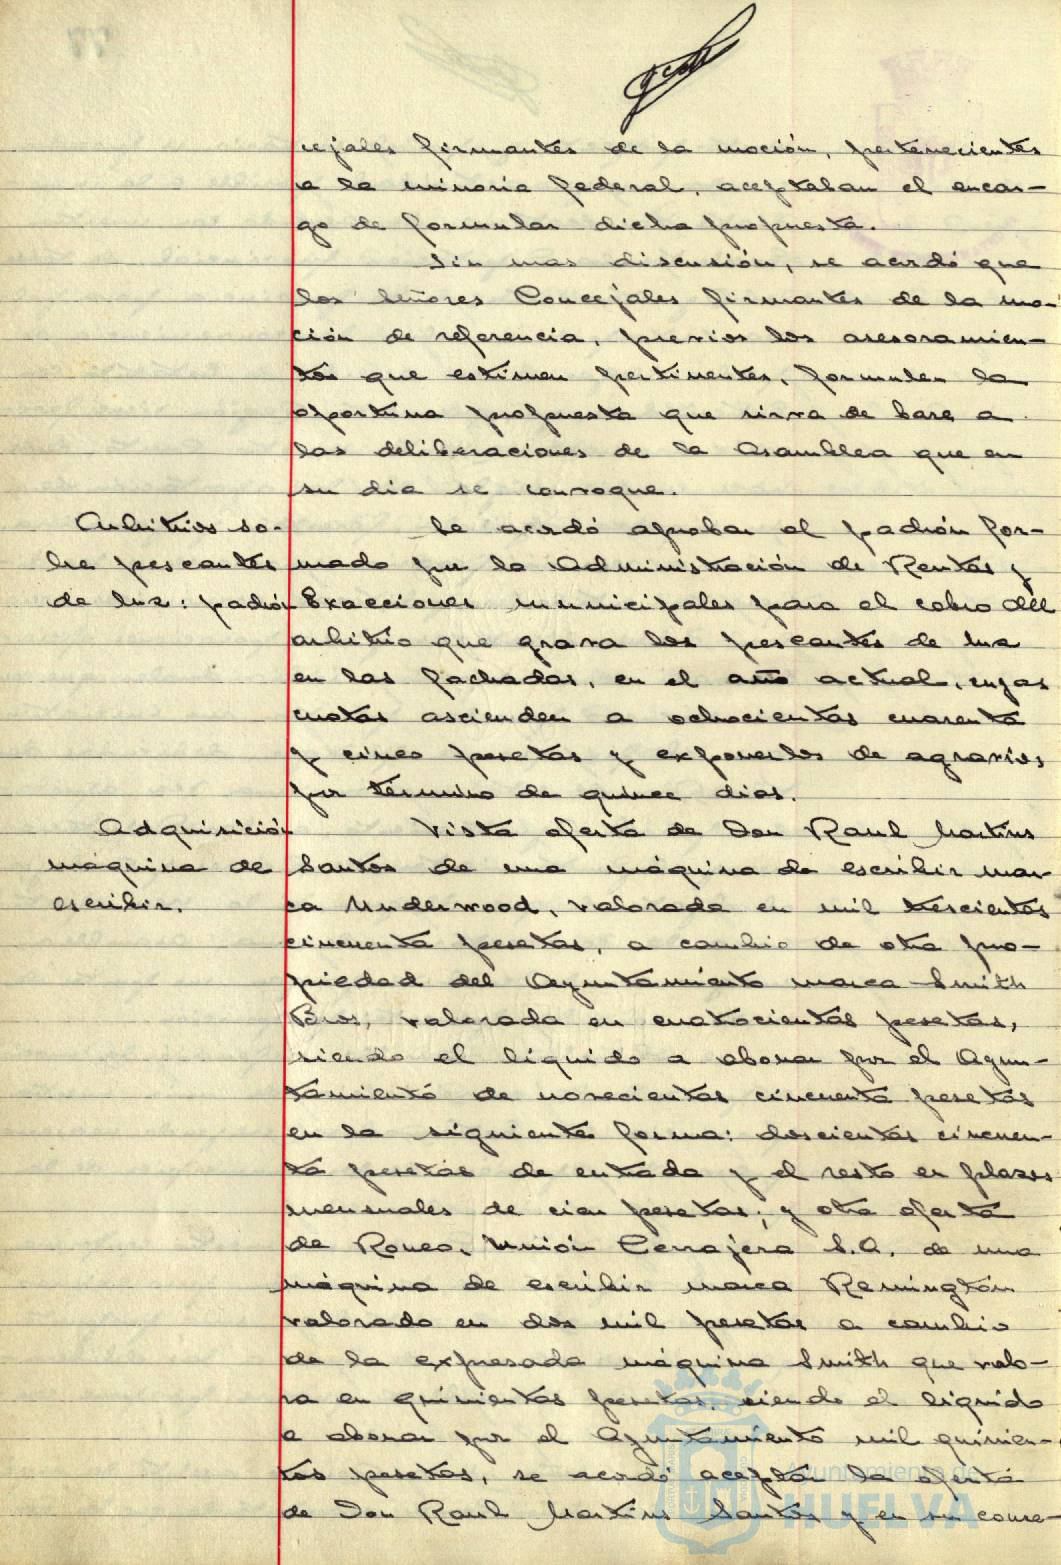 cejales firmantes de la moción, pertenecientes
a la minoria federal, aceptaban el encar-
go de formular dicha propuesta.
Sin mas discusión, se acordó que
los Señores Concejales firmantes de la mo-
ción de referencia, previos los asesoramien-
tos que estimen pertinentes, formulen la
oportuna propuesta que sirva de base a
las deliberaciones de la Asamblea que en
su dia se convoque.
Arbitrios so-
bre pescantes
de luz: padrón
Se acordó aprobar el padrón for-
mado por la Administración de Rentas y
Exacciones municipales para el cobro del
arbitrio que grava los pescantes de luz
en las fachadas, en el año actual, cuyas
cuotas ascienden a ochocientas cuarenta
y cinco pesetas y exponerlos de agravios
por término de quince dias.
Adquisición
máquina de
escribir.
Vista oferta de Don Raul Martins
Santos de una máquina de escribir mar
ca Underwood, valorada en mil trescientas
cincuenta pesetas, a cambio de otra pro-
piedad del Ayuntamiento marca Smith
Bros, valorada en cuatrocientas pesetas,
siendo el líquido a abonar por el Ayun-
tamiento de novecientas cincuenta pesetas
en la siguiente forma: doscientas cincuen-
ta pesetas de entrada y el resto en plazos
mensuales de cien pesetas; y otra oferta
de Roneo, Unión Cerrajera S.A. de una
máquina de escribir marca Remington
valorada en dos mil pesetas a cambio
de la expresada máquina Smith que valo-
ra en quinientas pesetas, siendo el líquido
a abonar por el Ayuntamiento mil quinien-
tas pesetas, se acordó aceptar la oferta
de Don Raul Martins Santos y en su conse-
Ayuntamiento de
HUELVA